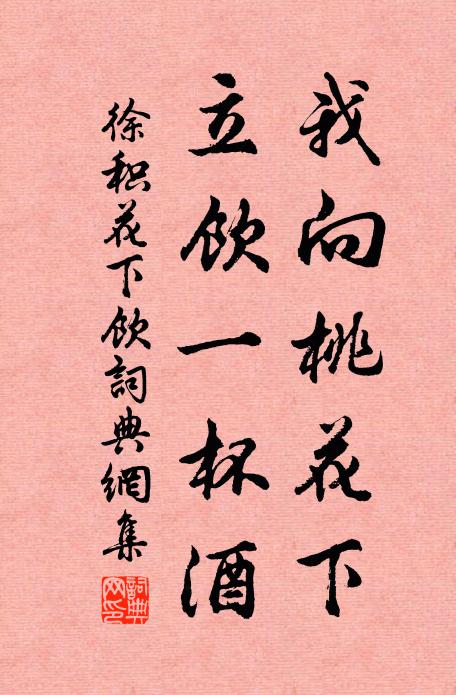 我向桃花下
立飲一杯酒
徐积花下飲詞典網集
詞典网印